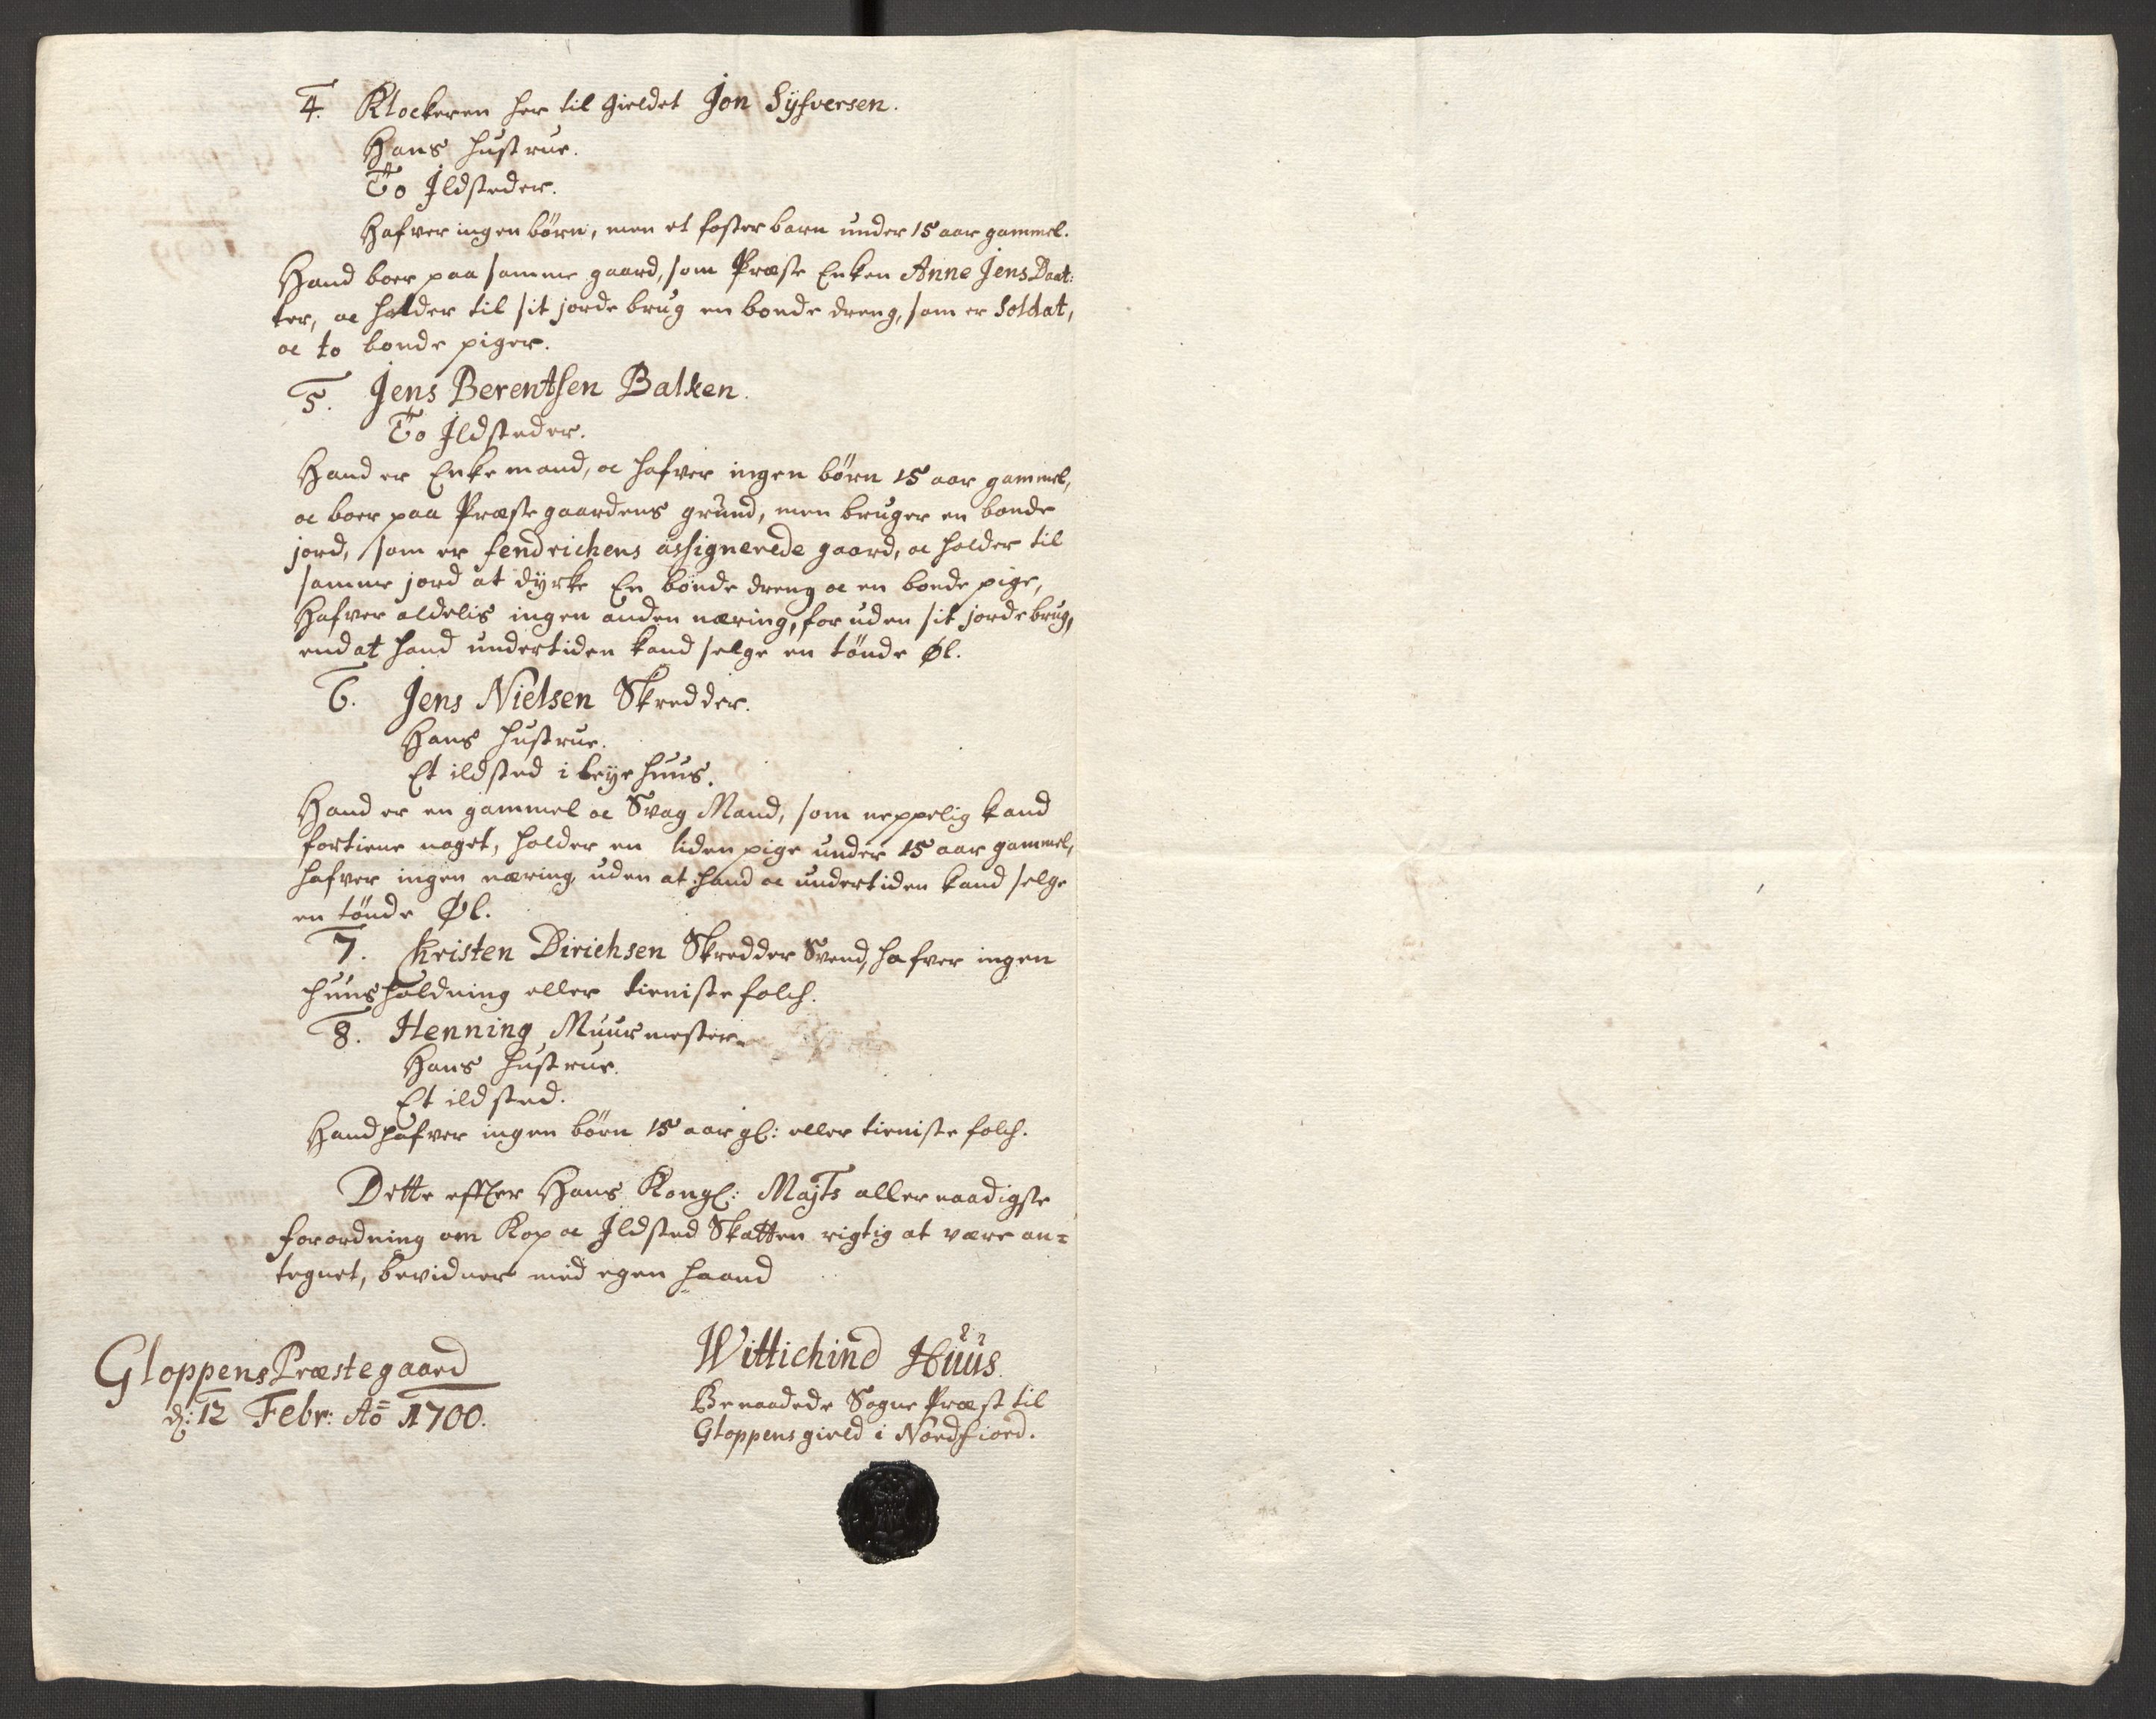 4. Klockeren her til gieldet Jon Syfversen.
Hans hustrue.
To Ildsteder.
Hafver ingen børn, men et foster barn under 15 aar gammel.
Hand boer paa samme gaard, som Præste Enken Anne Jens Daat:
ter, oc holder til sit jorde brug en bonde dreng, som er Soldat,
oc to bonde piger.
5. Jens Berentsen Balken.
To Ildsteder.
Hand er Enke mand, oc hafver ingen børn 15 aar gammel,
oc boer paa Præstegaardens grund, men bruger en bonde
jord, som er fendrichens assignerede gaard, oc holder til
samme jord at dyrke En bonde dreng oc en bonde pige,
Hafver aldelis ingen anden næring, foruden sit jordebrug,
end at hand undertiden kand selge en tønde Øl.
6. Jens Nielsen Skredder.
Hans hustrue.
Et ildsted i leyehuus.
Hand er en gammel oc Svag Mand, som neppelig kand
fortiene noget, holder en liden pige under 15 aar gammel,
hafver ingen næring, uden at hand oc undertiden kand selge
en tønde Øl.
7. Kristen Dirichsen Skredder Svend, hafver ingen
huusholdning eller tieniste folch.
8. Henning Muurmester.
Hans hustrue.
Et ildsted.
Hand hafver ingen børn 15 aar gl: eller tieniste folch.
Dette effter Hans Kongl: Majts allernaadigste
forordning om Kop oc Ildsted Skatten rigtig at være an=
tegnet, bevidner med egen haand
Wittichind Huus
Benaadede Sogne Præst til
Gloppens gield i Nordfiord.
Gloppens Præstegaard
d: 12 Febr: Ao 1700.